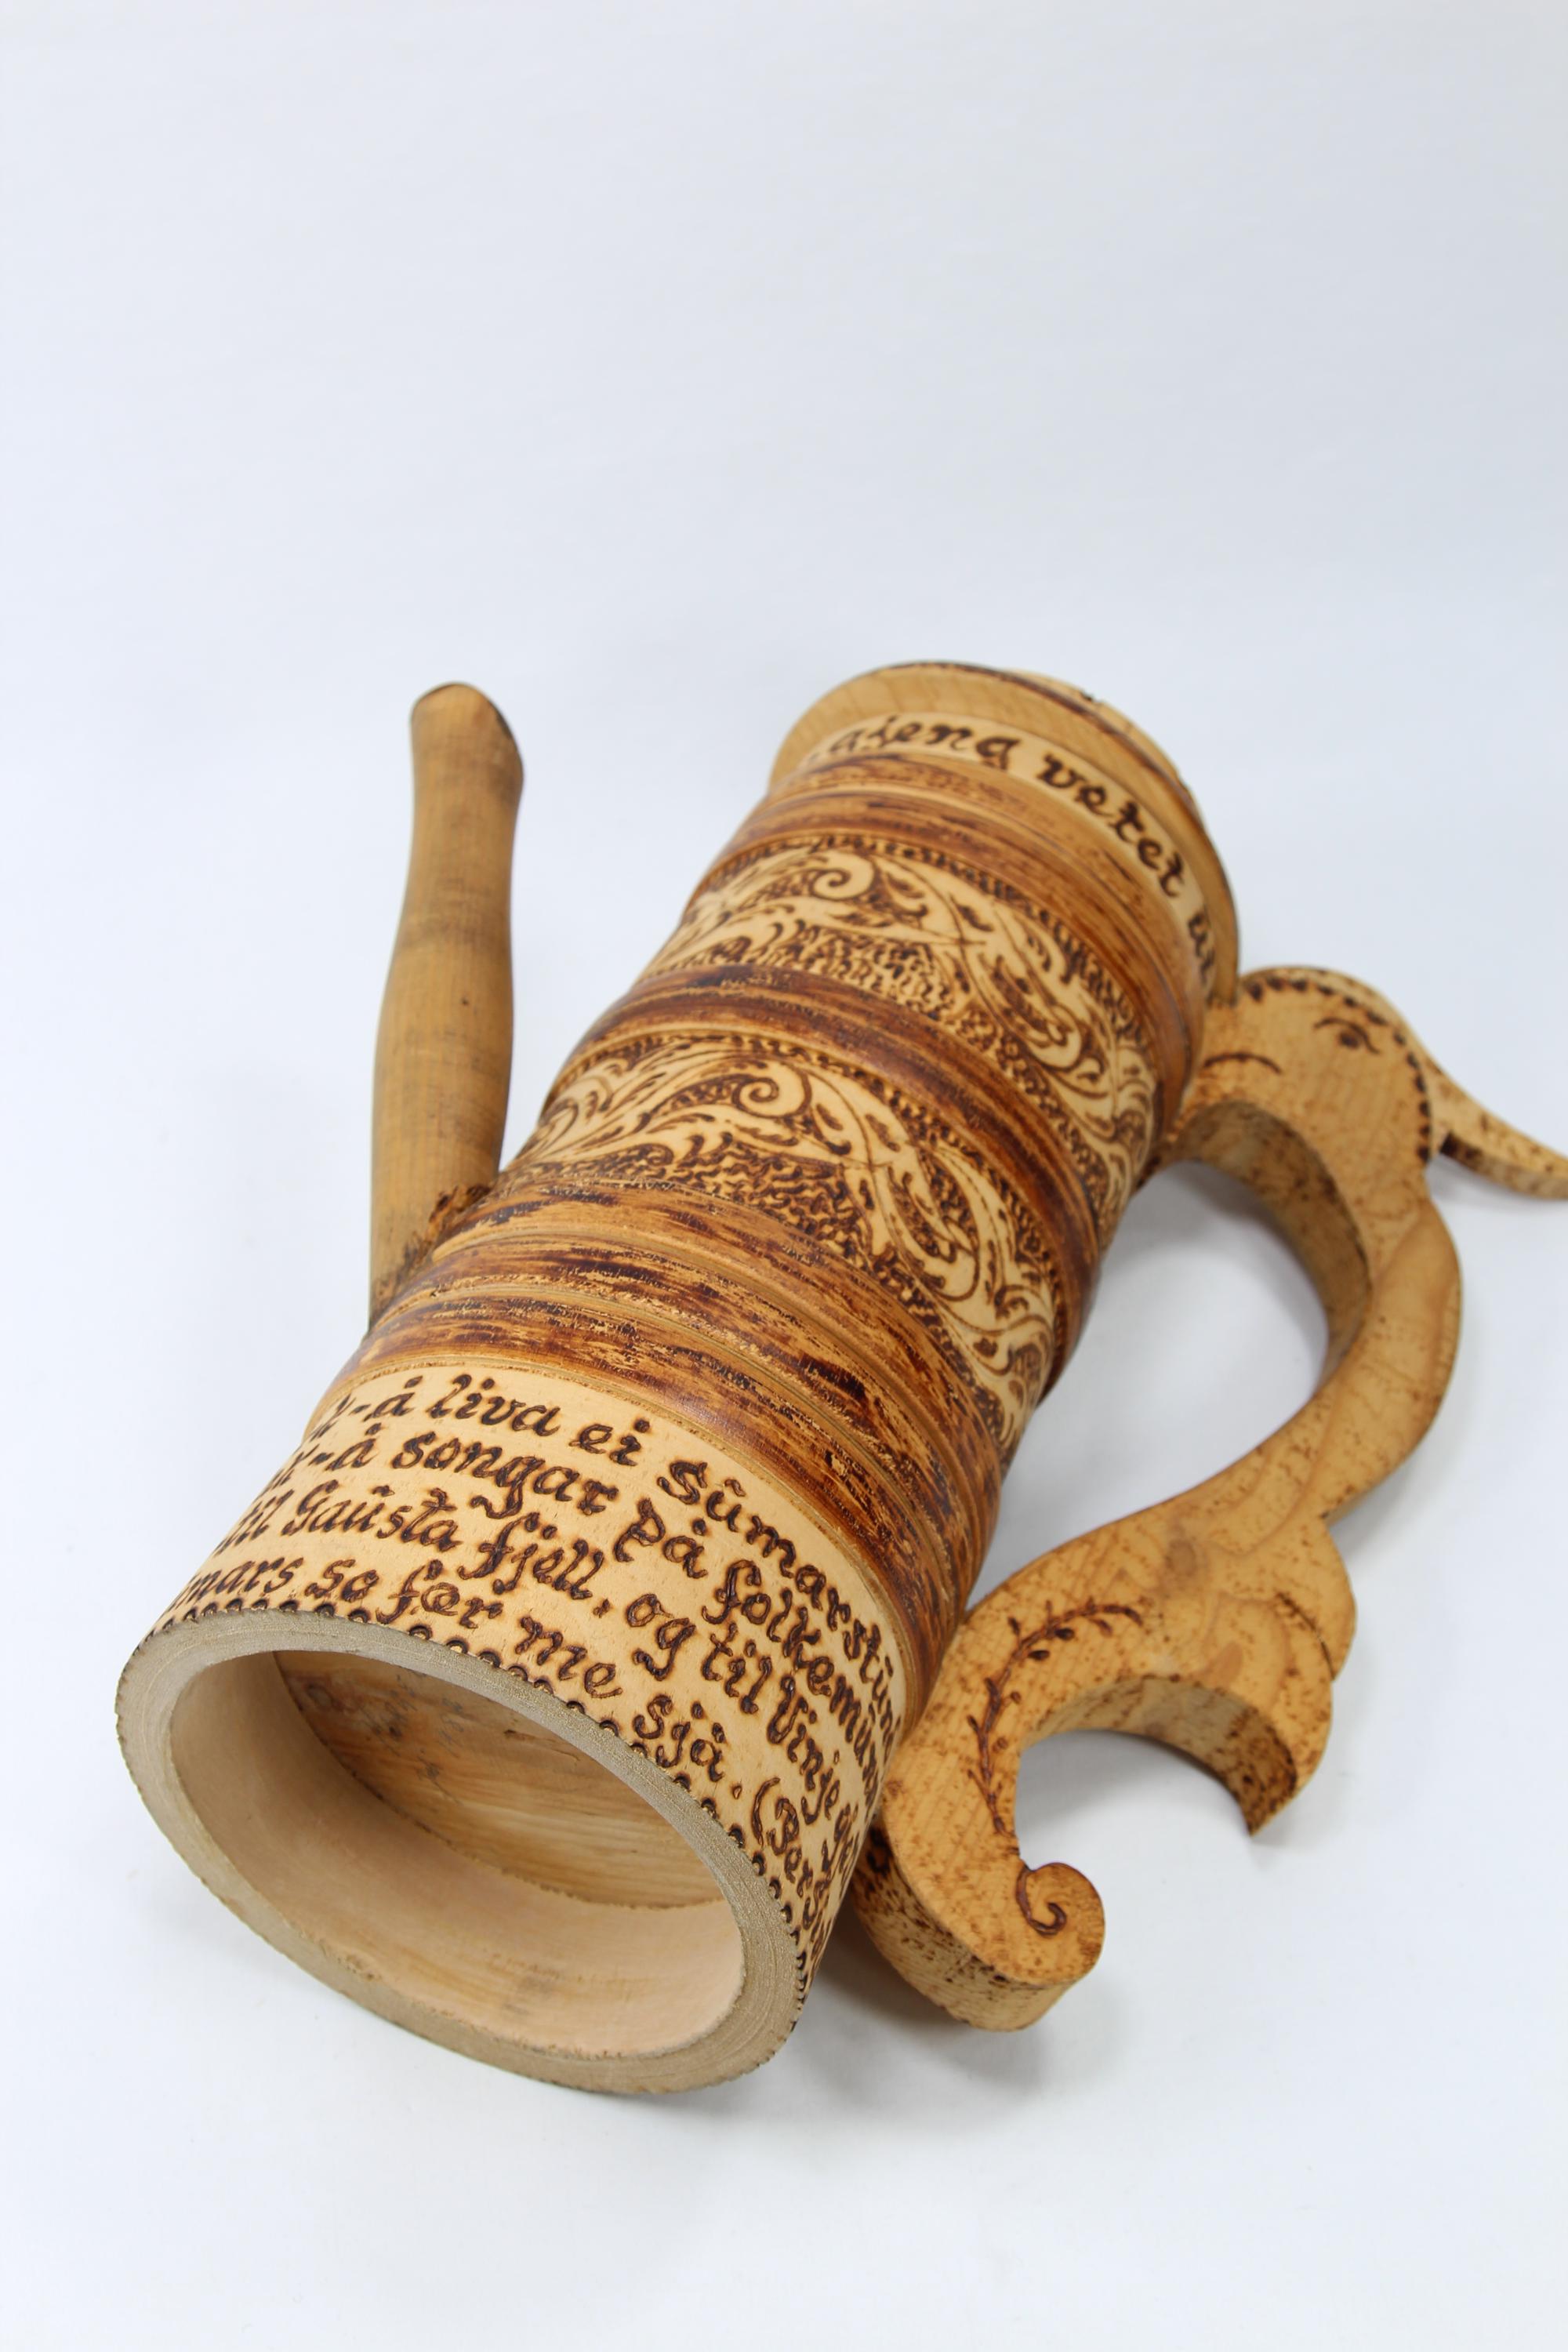 gjeng vetet
-å liva ei Sûmarstûn
-å songar på folkemûn
til Gaûsta fjell, og til Vinje
mars so før me sjå. (Per